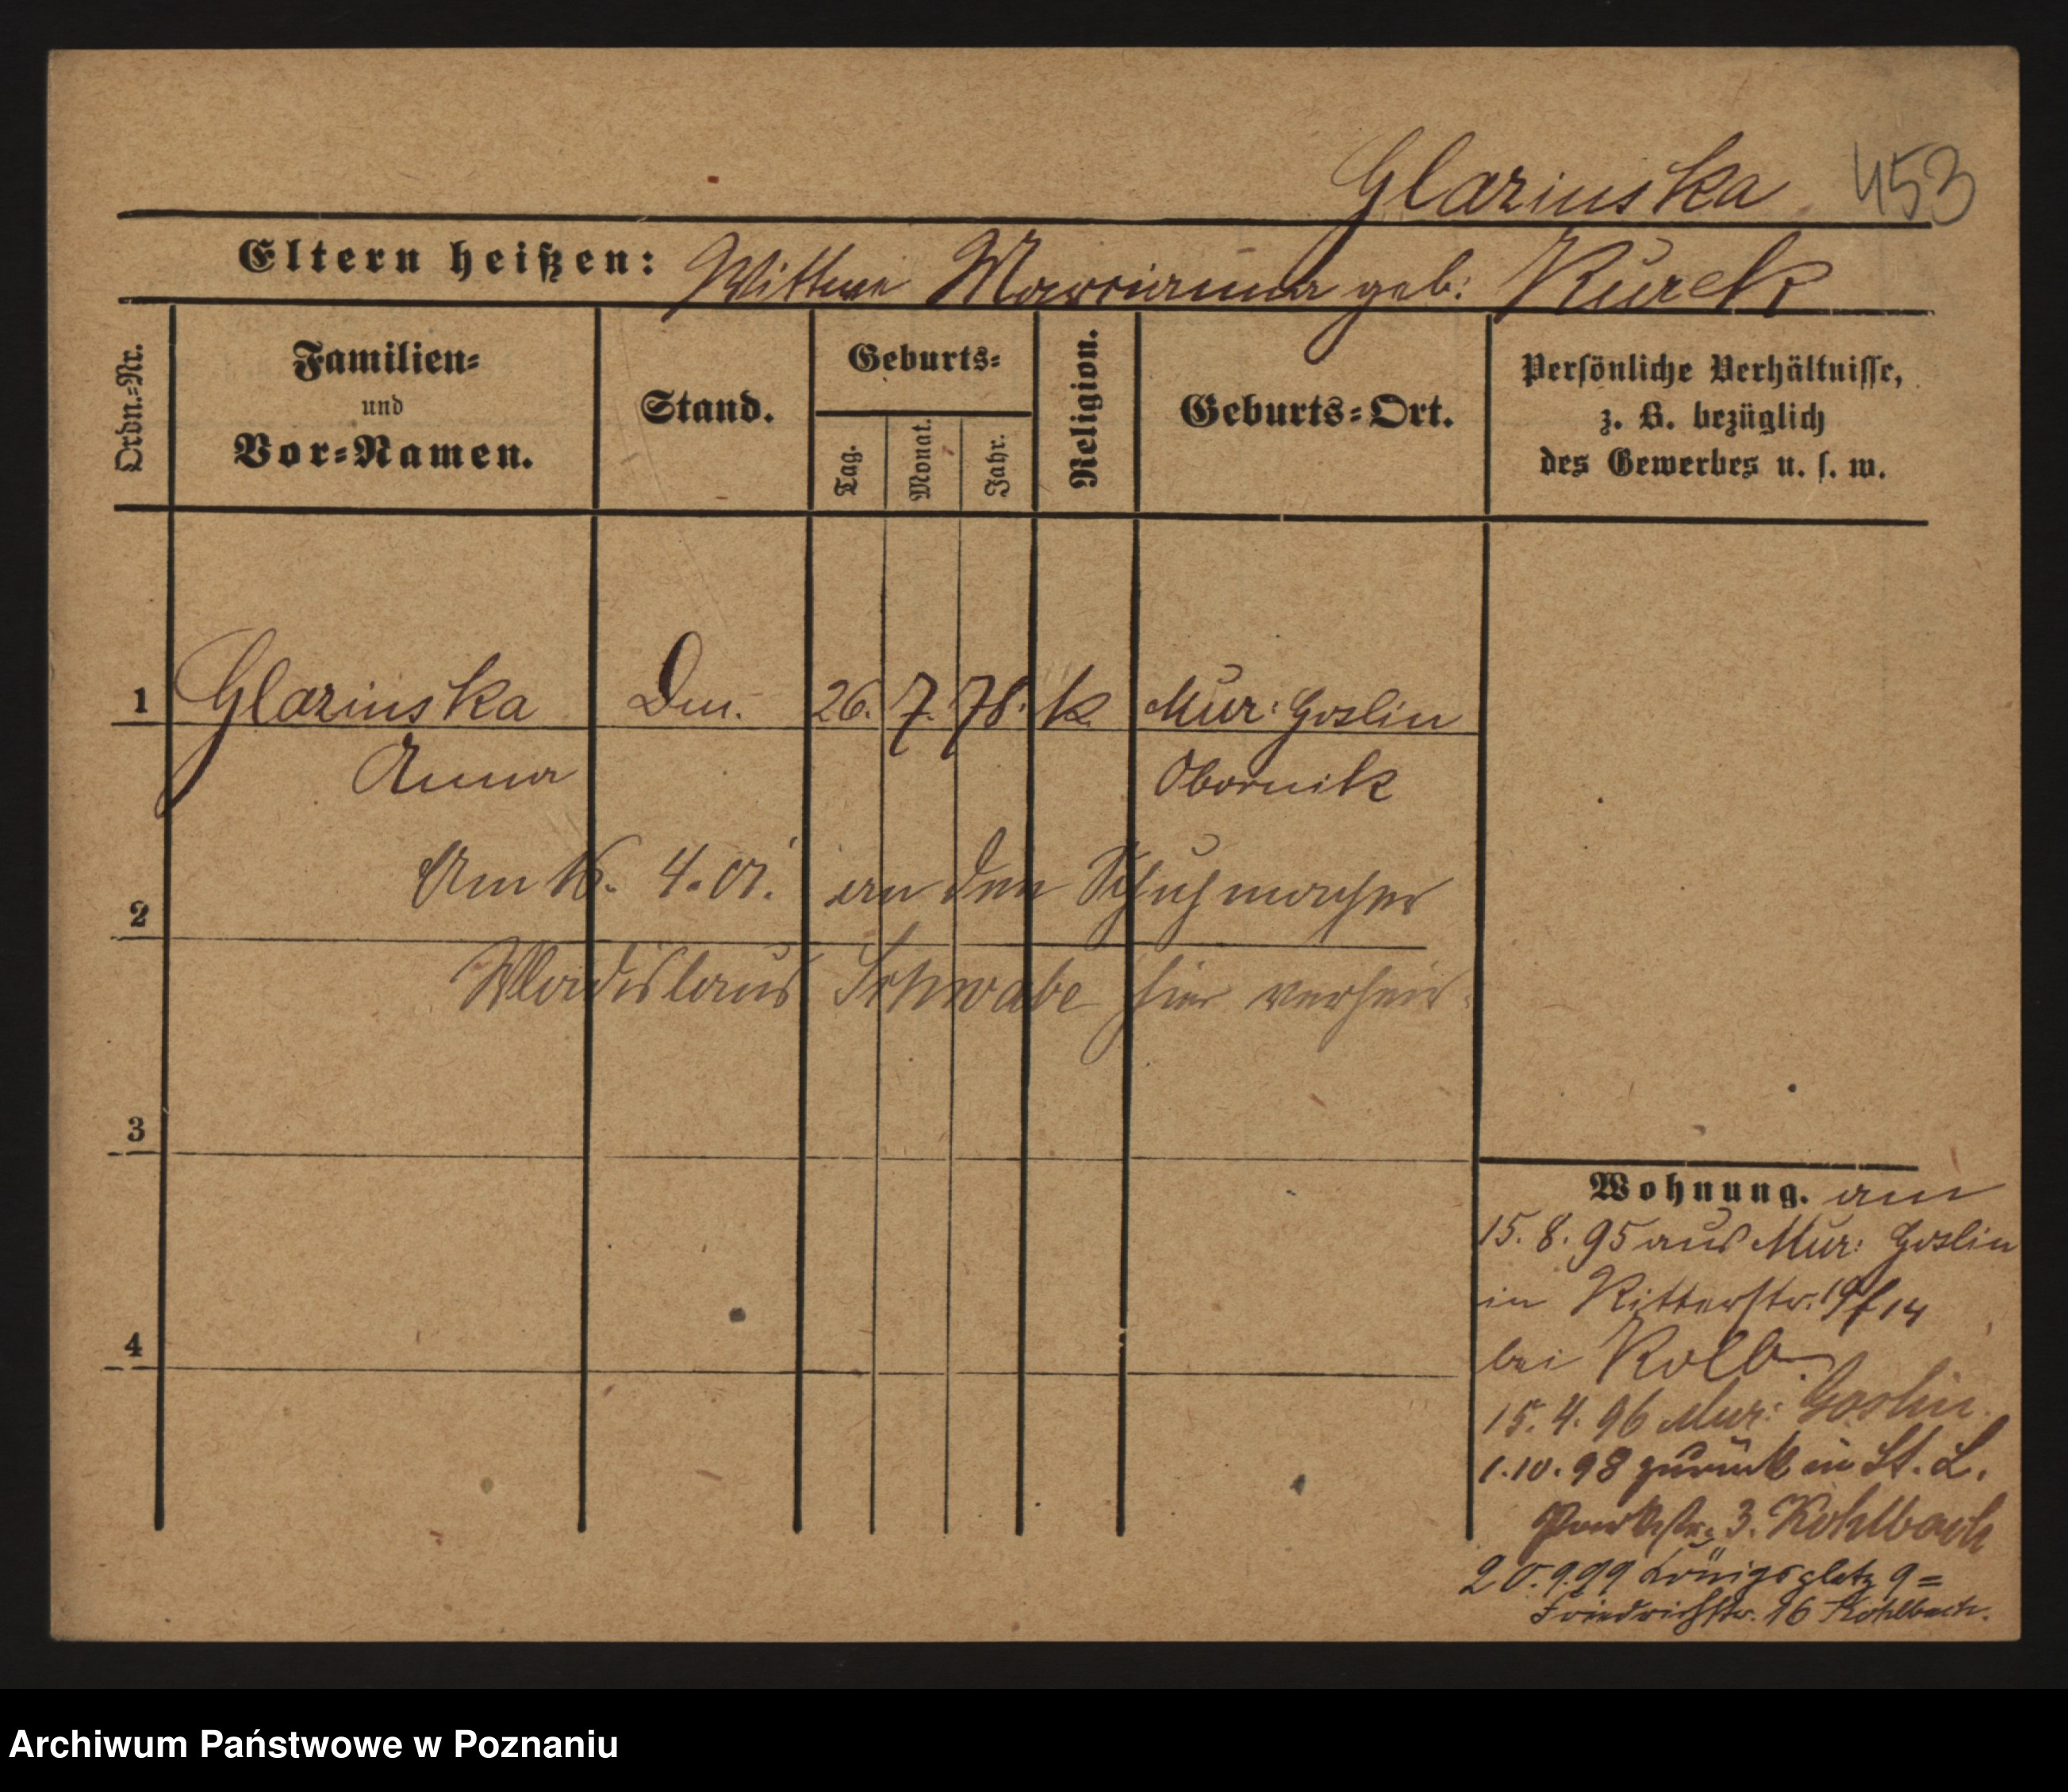 Glazinska 453
Eltern heißen: Wittwe Marrianna geb: Kurek
Ordn.=Nr.
Familien=
und
Vor=Namen.
Stand.
Geburts=
Tag.
Monat.
Jahr.
Religion.
Geburts=Ort.
Persönliche Verhältnisse,
z. B. bezüglich
des Gewerbes u. s. w.
1 Glazinska Dm. 26. 7. 78. k. Mur: Goslin
Anna Obornik
Am 16. 4. 01. an den Schuhmacher
2
Wladislaus Schwabe hier verheir.
3
4
Wohnung. am
15. 8. 95 aus Mur: Goslin
in Ritterstr.
bei Kolb
15. 4. 96 Mur: Goslin.
1. 10. 98 zurück in St. L.
Parkstr. 3. Kohlbach
20. 9. 99 Königsplatz 9=
Friedrichstr. 16 Kohlbach.
Archiwum Państwowe w Poznaniu